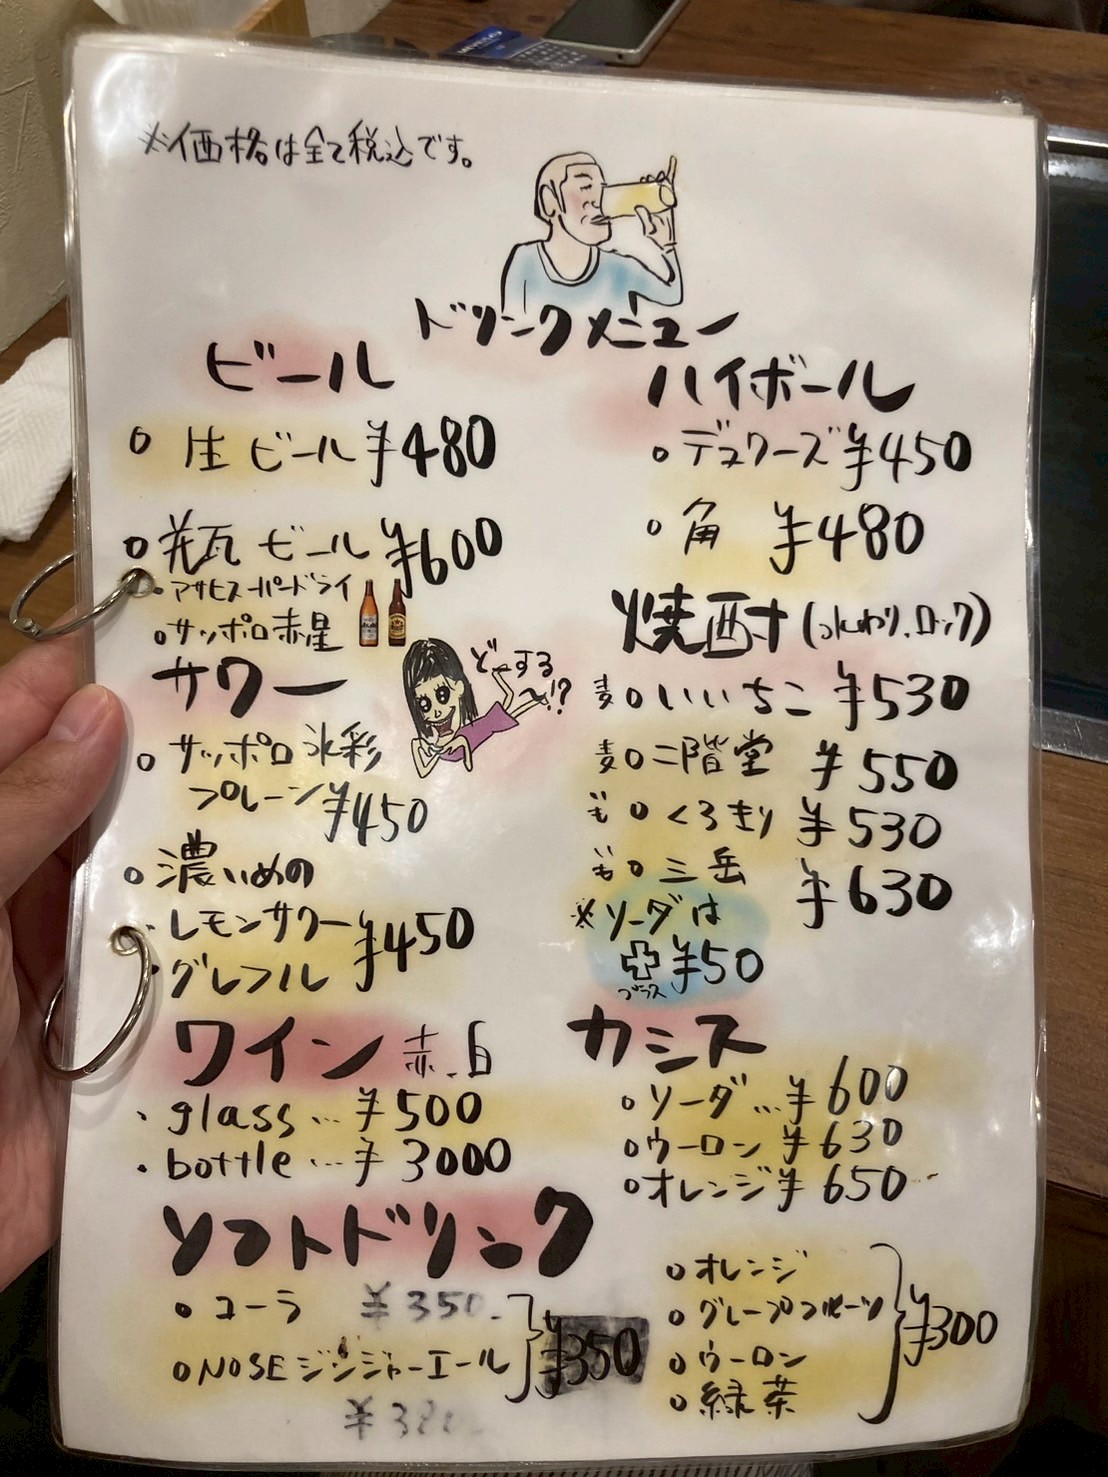 ※価格は全て税込です。
ドリンクメニュー
ビール
○ 生ビール ¥480
○ 瓶ビール ¥600
・アサヒスーパードライ
○サッポロ赤星
サワー
どーする〜!?
○ サッポロ氷彩
プレーン ¥450
○ 濃いめの
・レモンサワー
・グレフル
¥450
ワイン 赤.白
・glass... ¥500
・bottle... ¥3000
ソフトドリンク
○ コーラ ¥350
○NOSEジンジャーエール
¥350
ハイボール
○デュワーズ ¥450
○角 ¥480
焼酎(水わり.ロック)
麦○いいちこ ¥530
麦○二階堂 ¥550
芋○くろきり ¥530
芋○三岳 ¥630
※ソーダは
プラス ¥50
カシス
○ソーダ... ¥600
○ウーロン ¥630
○オレンジ ¥650
○オレンジ
○グレープフルーツ
○ウーロン
○緑茶
¥300